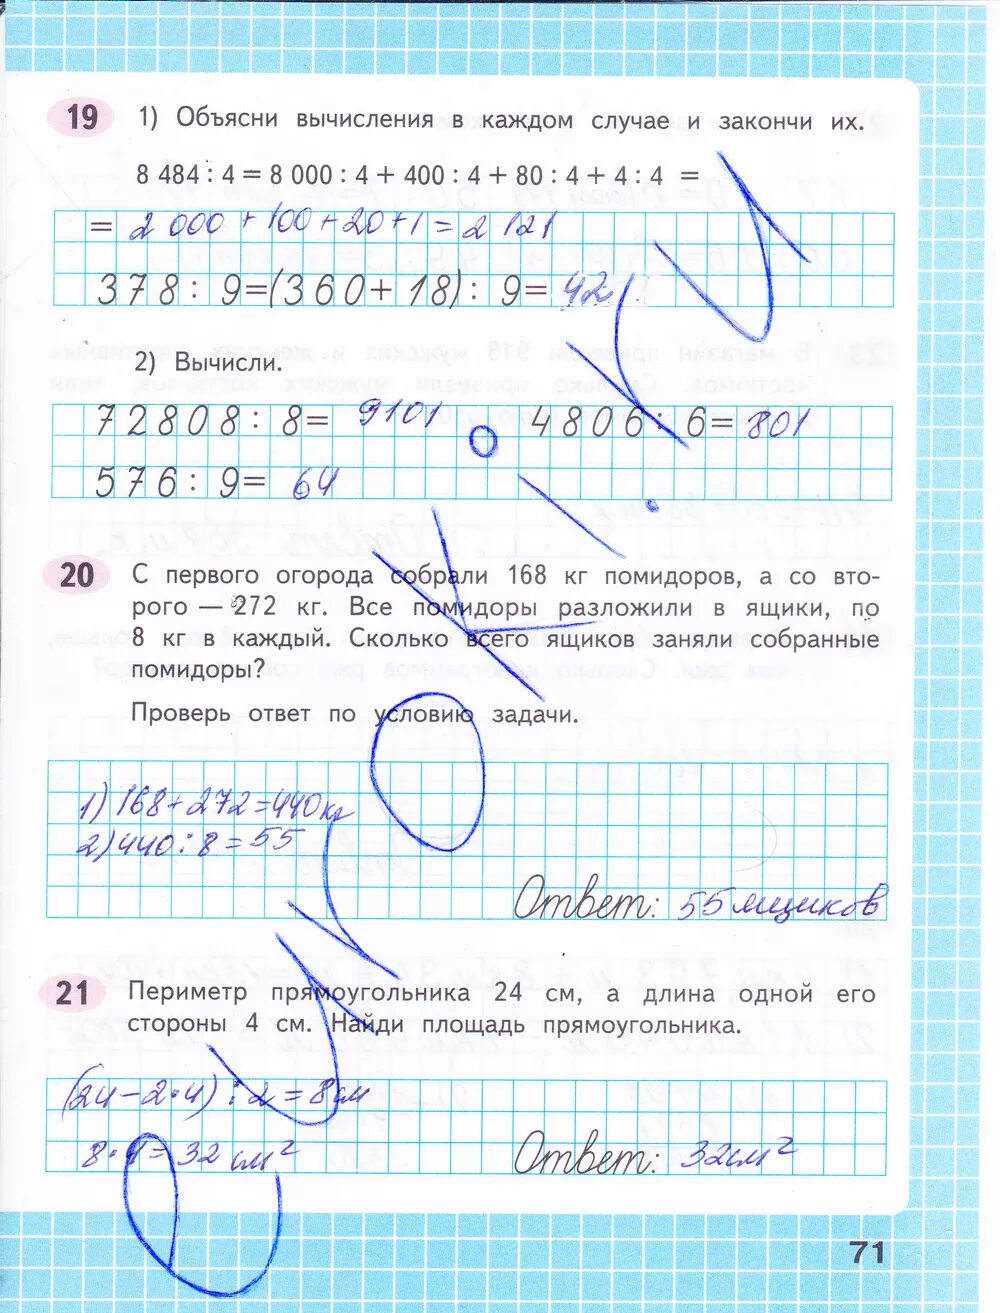 19 1) Объясни вычисления в каждом случае и закончи их.
8 484 : 4 = 8 000 : 4 + 400 : 4 + 80 : 4 + 4 : 4 =
= 2 000 + 100 + 20 + 1 = 2 121
378 : 9 = (360 + 18) : 9 = 42
2) Вычисли.
72808 : 8 = 9101 4806 : 6 = 801
576 : 9 = 64
20 С первого огорода собрали 168 кг помидоров, а со вто-
рого — 272 кг. Все помидоры разложили в ящики, по
8 кг в каждый. Сколько всего ящиков заняли собранные
помидоры?
Проверь ответ по условию задачи.
1) 168 + 272 = 440 кг
2) 440 : 8 = 55
Ответ: 55 ящиков
21 Периметр прямоугольника 24 см, а длина одной его
стороны 4 см. Найди площадь прямоугольника.
(24 - 2 · 4) : 2 = 8 см
8 · 4 = 32 см²
Ответ: 32 см²
71